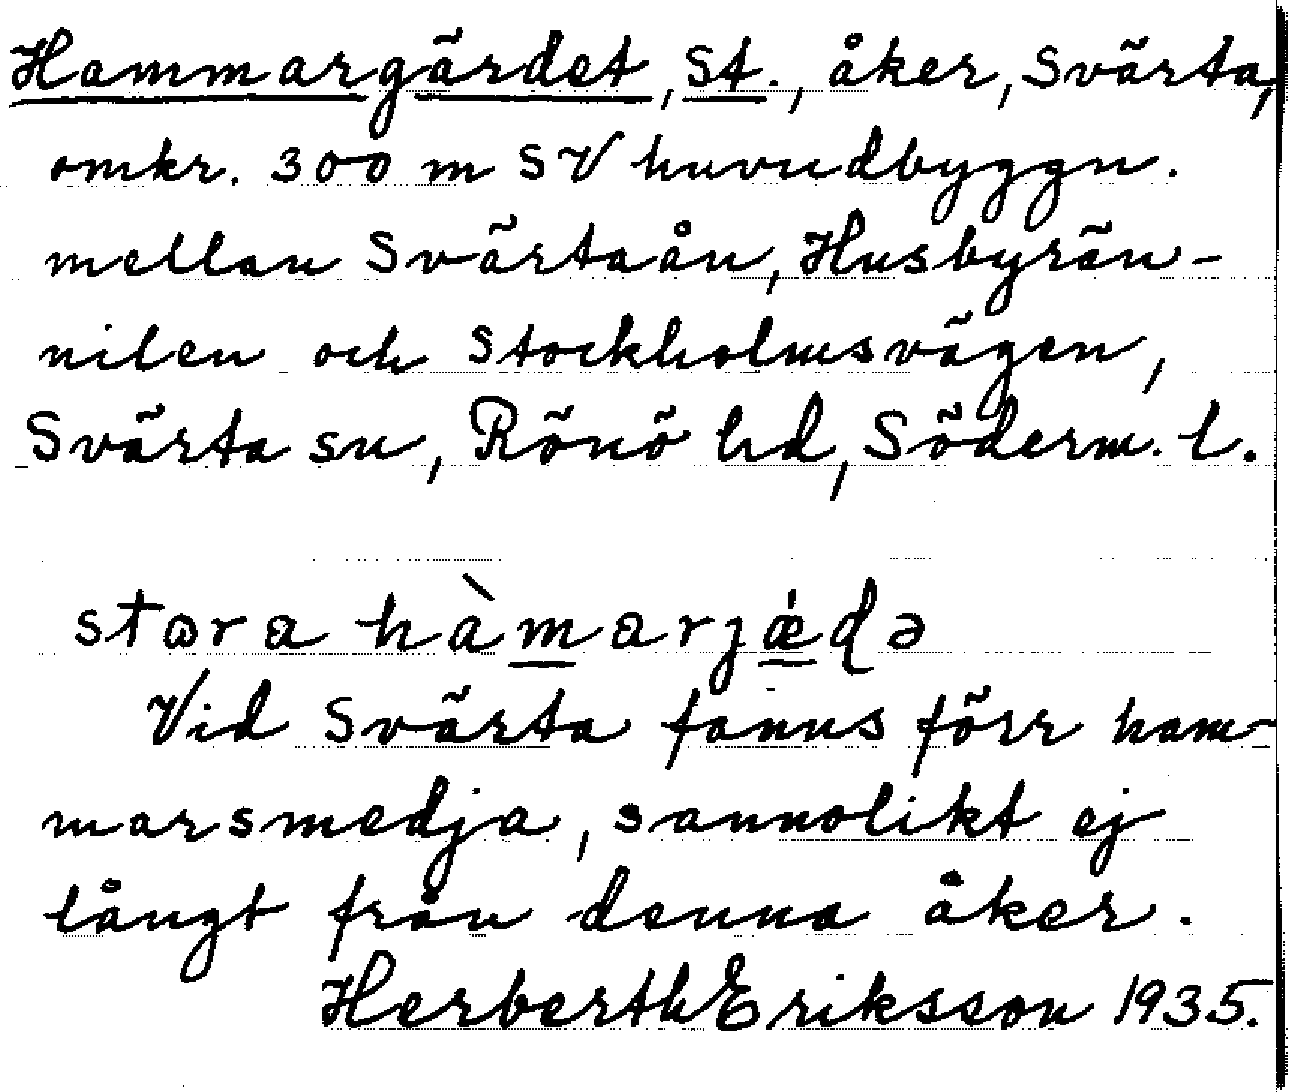 Hammargärdet, St., åker, Svärta,
omkr. 300 m SV huvudbyggn.
mellan Svärtaån, Husbyrän-
nilen och Stockholmsvägen,
Svärta sn, Rönö hd, Söderm. l.
stɷra hàmarjǽɖə
Vid Svärta fanns förr ham-
marsmedja, sannolikt ej
långt från denna åker.
Herberth Eriksson 1935.